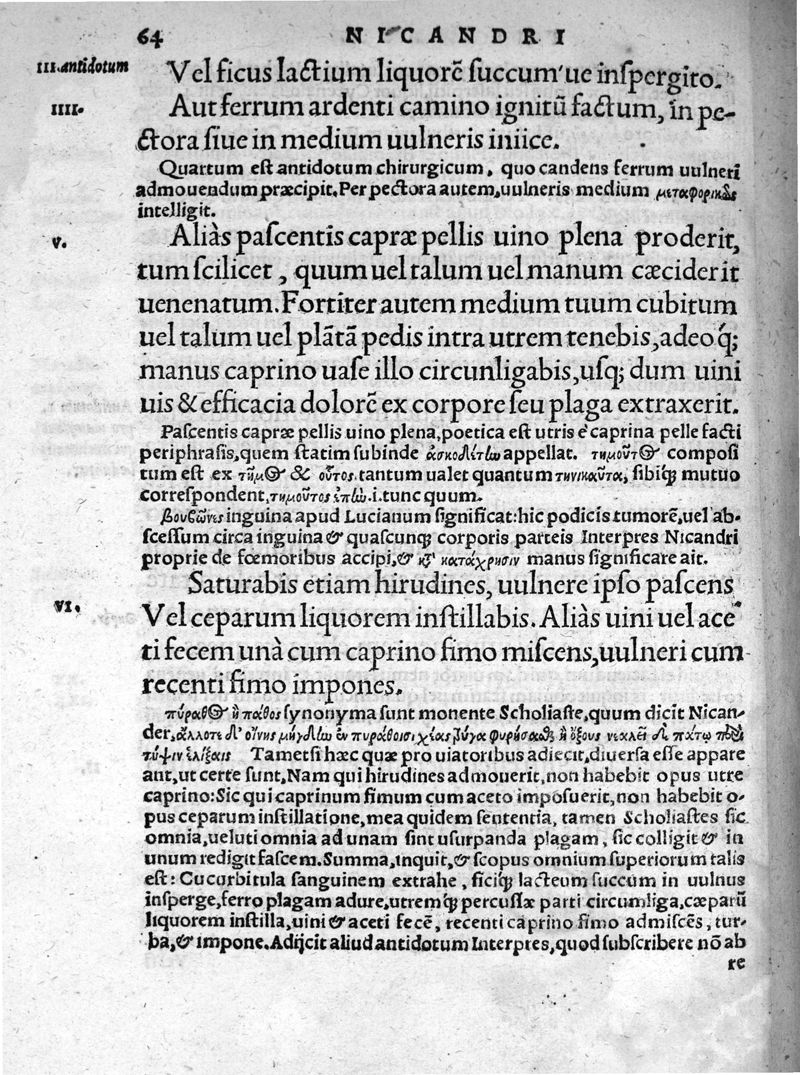 64 NICANDRI
III.antidotum Vel ficus lactium liquorẽ succum'ue inspergito.
IIII. Aut ferrum ardenti camino ignitũ factum, in pe-
ctora siue in medium uulneris iniice.
Quartum est antidotum chirurgicum, quo candens ferrum uulneri
admouendum præcipit. Per pectora autem, uulneris medium μεταφορικῶς
intelligit.
V. Aliàs pascentis capræ pellis uino plena proderit,
tum scilicet, quum uel talum uel manum cæciderit
uenenatum. Fortiter autem medium tuum cubitum
uel talum uel plãtã pedis intra utrem tenebis, adeoq;
manus caprino uase illo circunligabis, usq; dum uini
uis & efficacia dolorẽ ex corpore seu plaga extraxerit.
Pascentis capræ pellis uino plena, poetica est utris è caprina pelle facti
periphrasis, quem statim subinde appellat. τημοῦτος composi
tum est ex τῆμος & οὗτος. tantum ualet quantum τηνικαῦτα, sibiq; mutuo
correspondent, .i. tunc quum.
βουβῶνες inguina apud Lucianum significat: hic podicis tumorẽ, uel ab-
scessum circa inguina & quascunq; corporis parteis Interpres Nicandri
proprie de fœmoribus accipi, & κατάχρησιν manus significare ait.
Saturabis etiam hirudines, uulnere ipso pascens
VI. Vel ceparum liquorem instillabis. Aliàs uini uel ace
ti fecem unà cum caprino fimo miscens, uulneri cum
recenti fimo impones.
πύραθος ἢ πάθος synonyma sunt monente Scholiaste, quum dicit Nican-
der, ἄλλοτε
Tametsi hæc quæ pro uiatoribus adiecit, diuersa esse appare
ant, ut certe sunt, Nam qui hirudines admouerit, non habebit opus utre
caprino: Sic qui caprinum fimum cum aceto imposuerit, non habebit o-
pus ceparum instillatione, mea quidem sententia, tamen Scholiastes sic
omnia, ueluti omnia ad unam sint usurpanda plagam, sic colligit & in
unum redigit fascem. Summa, inquit, & scopus omnium superiorum talis
est: Cucurbitula sanguinem extrahe, ficiq; lacteum succum in uulnus
insperge, ferro plagam adure, utremq; percussæ parti circumliga, cæparũ
liquorem instilla, uini & aceti fecẽ, recenti caprino fimo admiscẽs, tur-
ba, & impone. Adijcit aliud antidotum Interpres, quod subscribere nõ ab
re